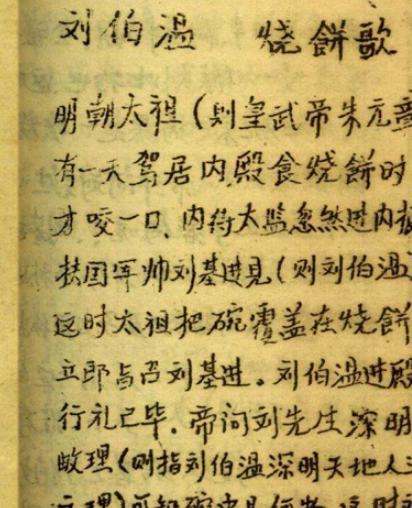 刘伯温 烧餅歌
明朝太祖(则皇武帝朱元章
有一天驾居内殿食烧餅时
才咬一口、内侍太监忽然进内报
扶国军帅刘基进見(则刘伯温
这时太祖把碗覆盖在烧餅
立即召刘基进。刘伯温进殿
行礼已毕.帝问刘先生深明
故理(则指刘伯温深明天地人